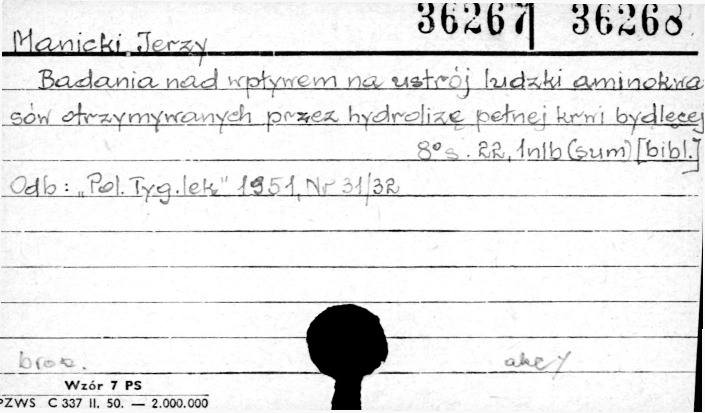 36267 36268
Manicki Jerzy
Badania nad wpływem na ustrój ludzki aminokwa
sów otrzymywanych przez hydrolizę pełnej krwi bydlęcej
8° s. 22, 1nlb (sum) [bibl.]
Odb: „Pol. Tyg. lek" 1951, Nr 31/32
brosz. akc/
Wzór 7 PS
PZWS C 337 II. 50. — 2.000.000